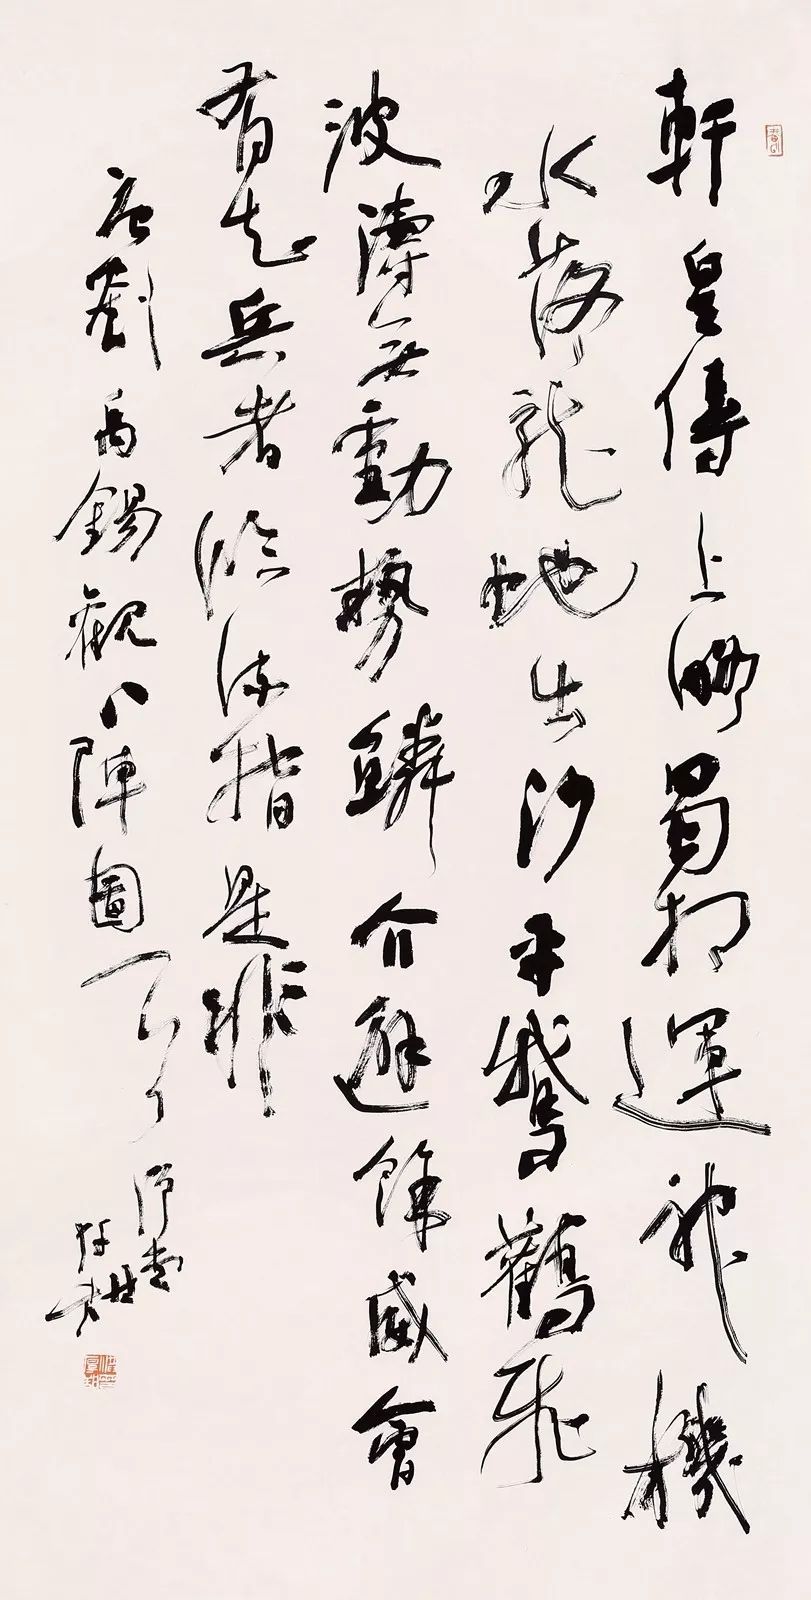 軒皇傳上略蜀相運神機
水落龍蛇出沙平鵝鸛飛
波濤無動勢鱗介避餘威會
有知兵者臨流指是非
唐劉禹錫觀八陣圖一首